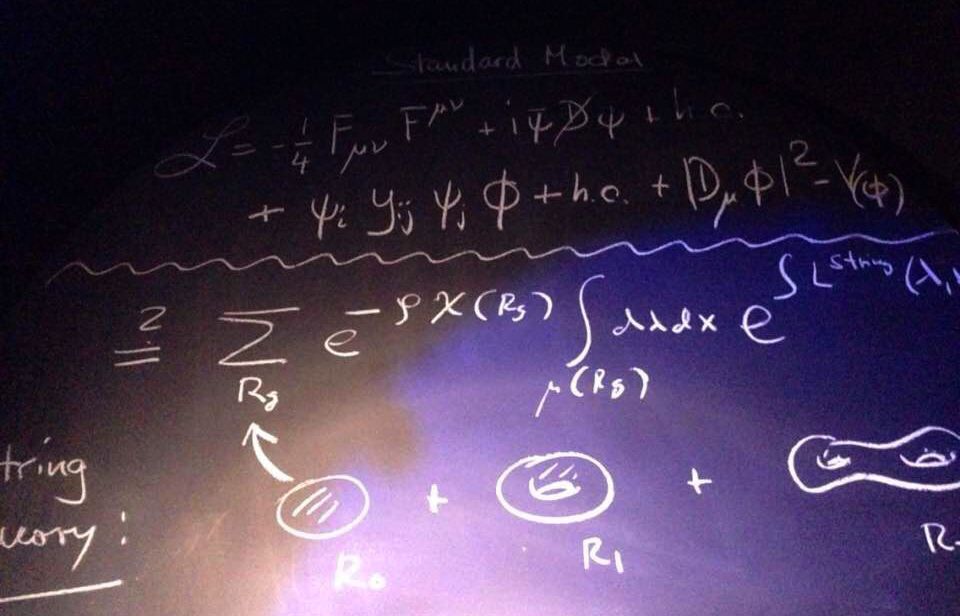 Standard Model
ℒ = -1/4 F_μν F^μν + iψ̄D̸ψ + h.c.
+ ψ_i y_ij ψ_j ϕ + h.c. + |D_μ ϕ|² - V(ϕ)
?= Σ_{R_g} e^{-ρχ(R_g)} ∫_{μ(R_g)} dλdx e^{∫L^{string}(λ,
tring
eory:
R_0 + R_1 + R